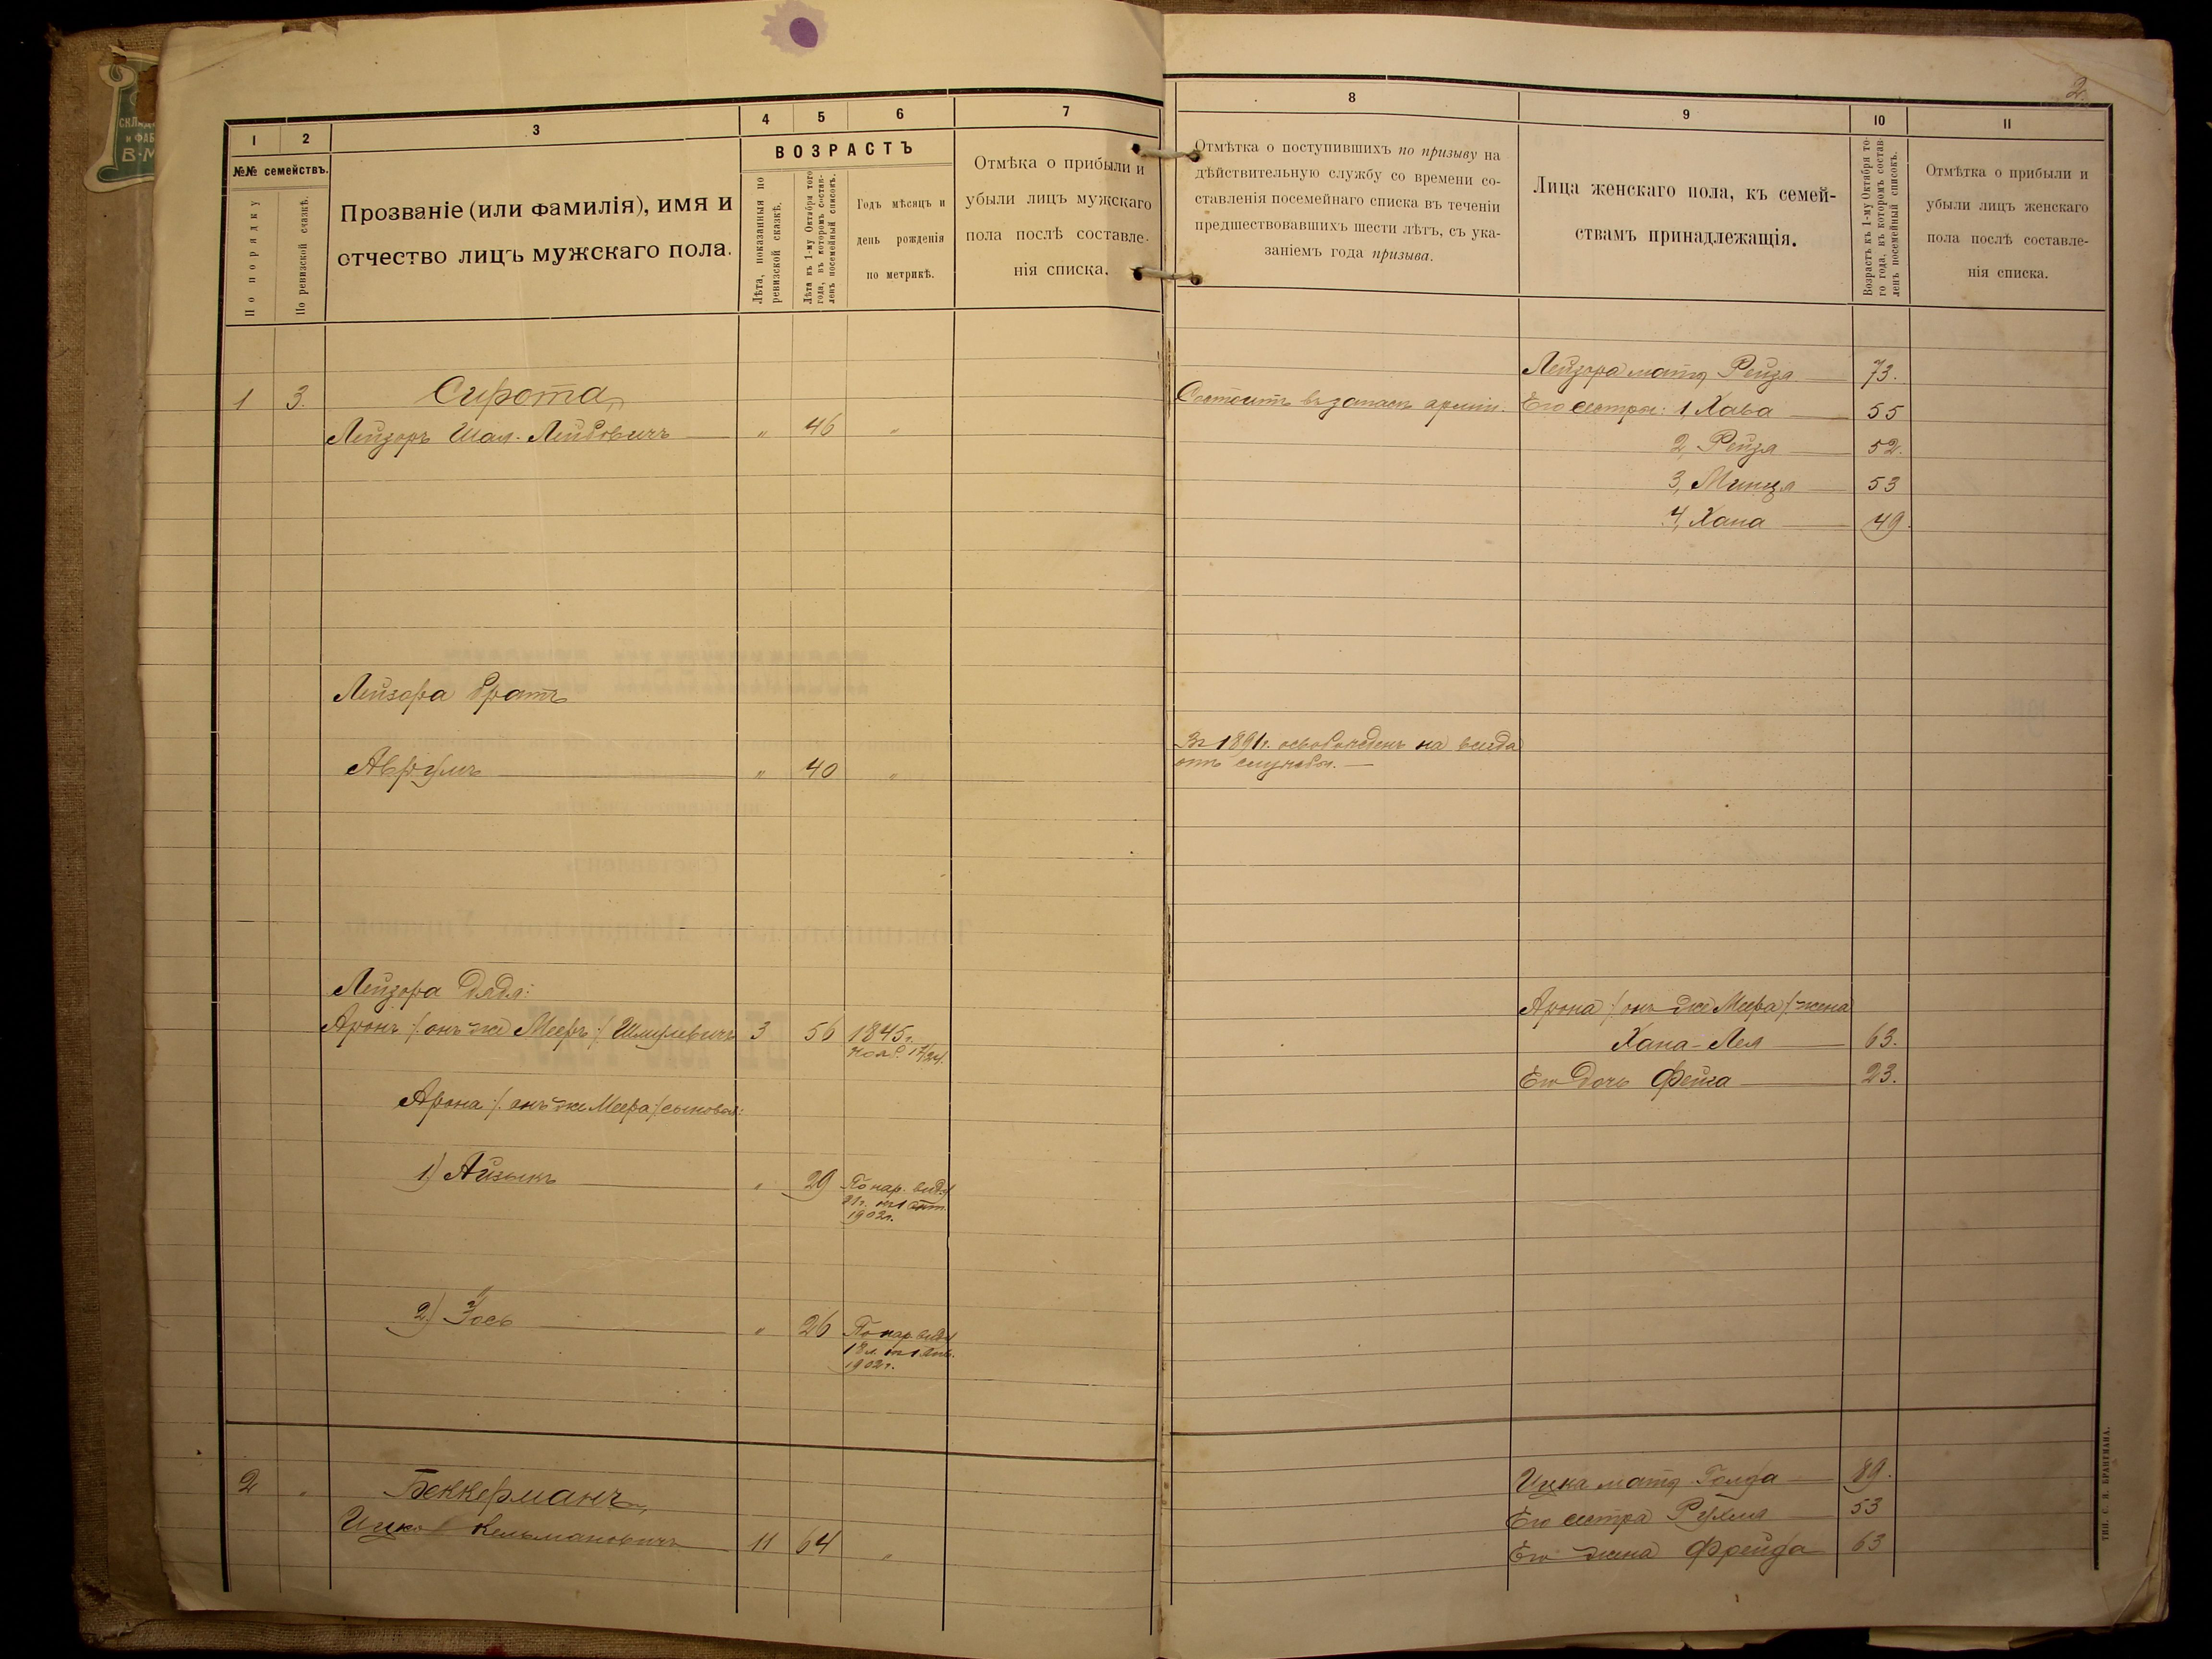 2.
1
2
3
4
5
6
7
№№ семействъ.
По порядку
По ревизской сказкѣ.
Прозваніе (или фамилія), имя и
отчество лицъ мужскаго пола.
ВОЗРАСТЪ
Лѣта, показанныя по
ревизской сказкѣ.
Лѣта къ 1-му Октября того
года, въ которомъ состав-
ленъ посемейный списокъ.
Годъ мѣсяцъ и
день рожденія
по метрикѣ.
Отмѣка о прибыли и
убыли лицъ мужскаго
пола послѣ составле-
нія списка.
1 3. Сирота,
Лейзоръ Шая-Лейбовичъ " 46 "
Лейзора братъ
Аврумъ " 40 "
Лейзора дядя:
Аронъ /: онъ же Мееръ :/ Шмулевичъ 3 56 1845 г.
Нояб. 17/24
Арона /: онъ же Меера :/ сыновья:
1) Айзыкъ " 29 По нар. виду
21 г. къ 1 Окт.
1902 г.
2) Іось " 26 По нар. виду
18 л. къ 1 Янв.
1902 г.
2 " Беккерманъ,
Ицко Кельмановичъ 11 64 "
8
9
10
11
Отмѣтка о поступившихъ по призыву на
дѣйствительную службу со времени со-
ставленія посемейнаго списка въ теченіи
предшествовавшихъ шести лѣтъ, съ ука-
заніемъ года призыва.
Лица женскаго пола, къ семей-
ствамъ принадлежащія.
Возрастъ къ 1-му Октября то-
го года, въ которомъ состав-
ленъ посемейный списокъ.
Отмѣтка о прибыли и
убыли лицъ женскаго
пола послѣ составле-
нія списка.
Лейзора мать Рейза 73.
Состоитъ въ запасѣ арміи. Его сестры: 1, Хава 55
2, Рейзя 52.
3, Минця 53
4, Хана 49.
Въ 1891 г. освобожденъ на всегда
отъ службы.
Арона /: онъ же Меера :/ жена
Хана-Лея 63.
Его дочь Фейга 23.
Ицка мать Голда 89.
Его сестра Рухля 53
Его жена Фрейда 63
ТИП. С. Н. БРАНЕМАНА.
СКЛАД
и ФАБ
В·М